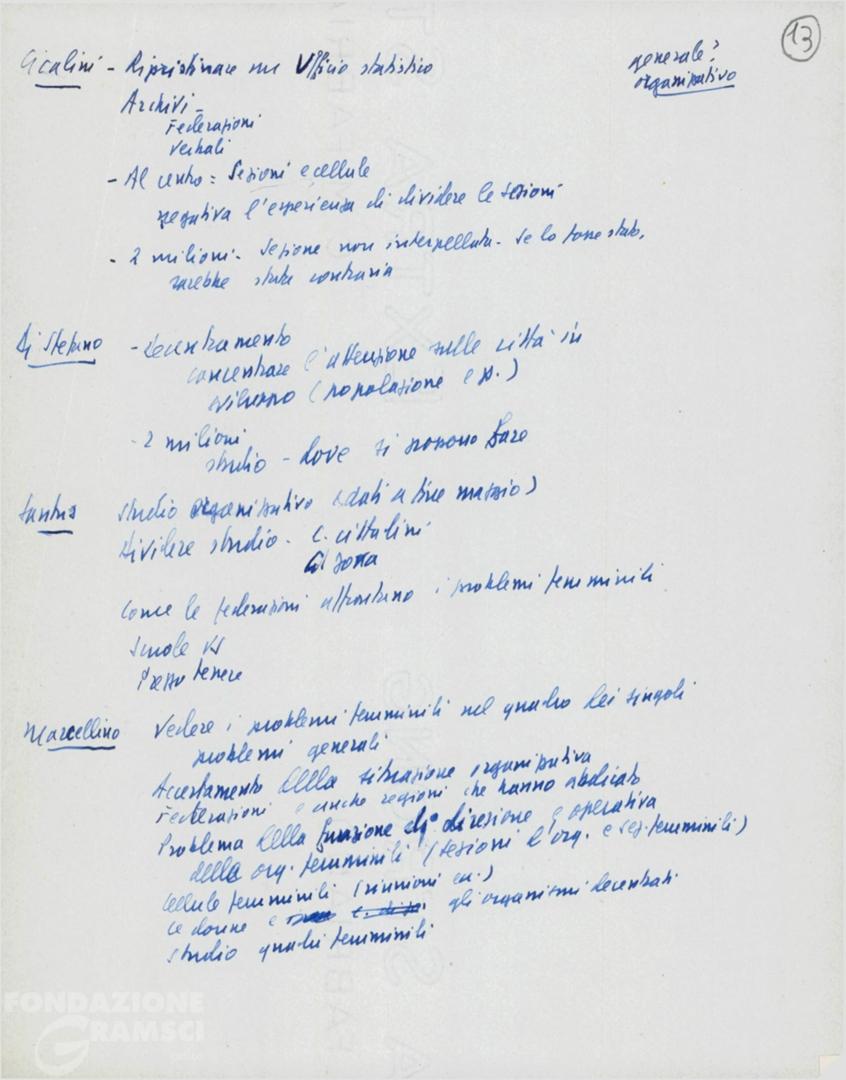 13
generale?
organizzativo
Cicalini - Ripristinare un Ufficio statistico
Archivi -
Federazioni
Verbali
- Al centro = Sezioni e cellule
negativa l'esperienza di dividere le sezioni
- 2 milioni - Sezione non interpellata - se lo fosse stato,
sarebbe stata contraria
Di Stefano - Decentramento
concentrare l'attenzione sulle città in
sviluppo (popolazione e p.)
- 2 milioni
studio - dove si possono fare
studio organizzativo (dati a fine maggio)
Dividere studio - C. cittadini
di zona
Come le federazioni affrontano i problemi femminili
Scuole
tenere
Marcellino Vedere i problemi femminili nel quadro dei singoli
problemi generali
Accertamento della situazione organizzativa
Federazioni e anche regioni che hanno abdicato
Problema della funzione di direzione e operativa
della org. femminili (sezioni d'org. e sez. femminili)
Cellule femminili (riunioni
Le donne e gli organismi decentrati
studio quadri femminili
FONDAZIONE
GRAMSCI